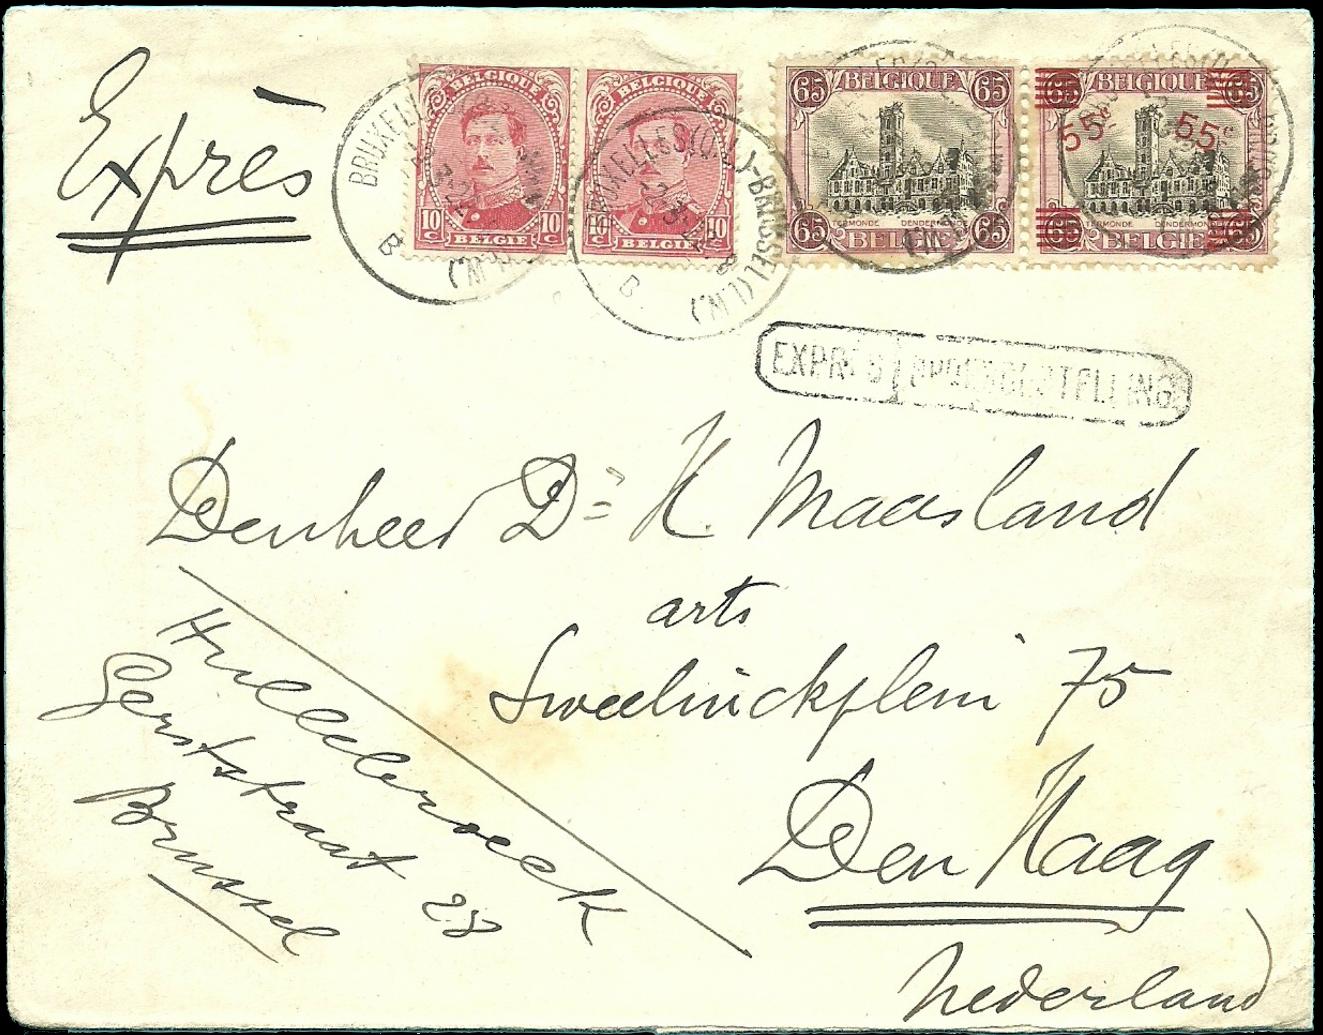 Exprès
BELGIQUE
10 c BELGIË 10 c
BELGIQUE
10 c BELGIË 10 c
65 BELGIQUE 65
TERMONDE DENDERMONDE
65 BELGIË 65
65 BELGIQUE 65
55c 55c
TERMONDE DENDERMONDE
65 BELGIË 65
BRUXELLES (Q.L.)-BRUSSEL (L.W.)
B
EXPRES SPOEDBESTELLING
Denheer Dr H. Maasland
arts
Sweelinckplein 75
Den Haag
Nederland
Hullebroeck
Gerststraat 23
Brussel